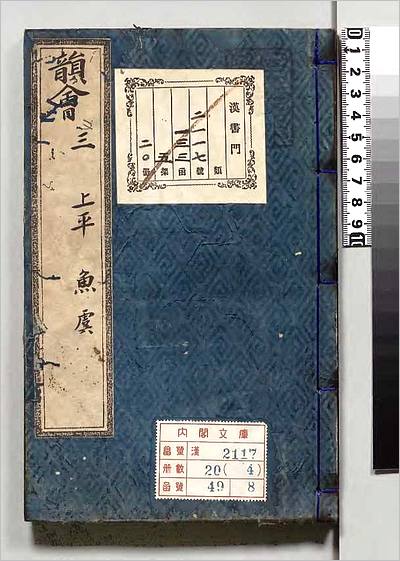 韻會
三
上平
魚虞
漢書門
類
二一一七號
一三三函
五架
二〇冊
內閣文庫
番號 漢 2117
冊數 20(4)
函號 49 8
0 1 2 3 4 5 6 7 8 9 10